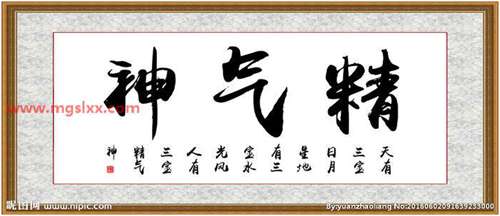 精气神
天有
三宝
日月
星地
有三
宝水
火风
人有
三宝
精气
神
www.mgslxx.com
昵图网 www.nipic.com
By:yuanzhaoliang No:20160602091639233000